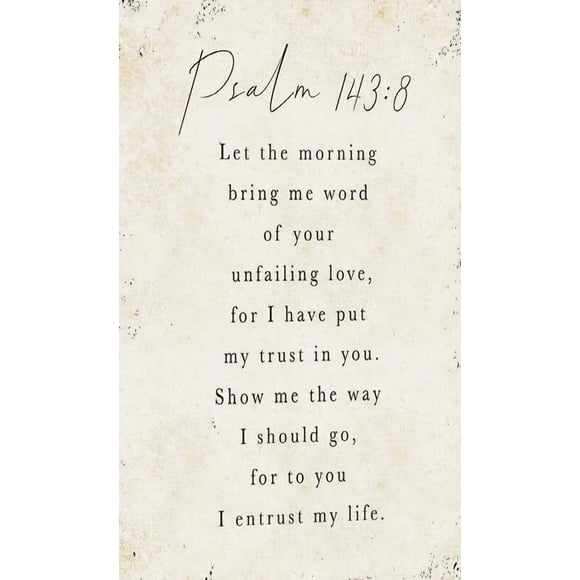 Psalm 143:8
Let the morning
bring me word
of your
unfailing love,
for I have put
my trust in you.
Show me the way
I should go,
for to you
I entrust my life.